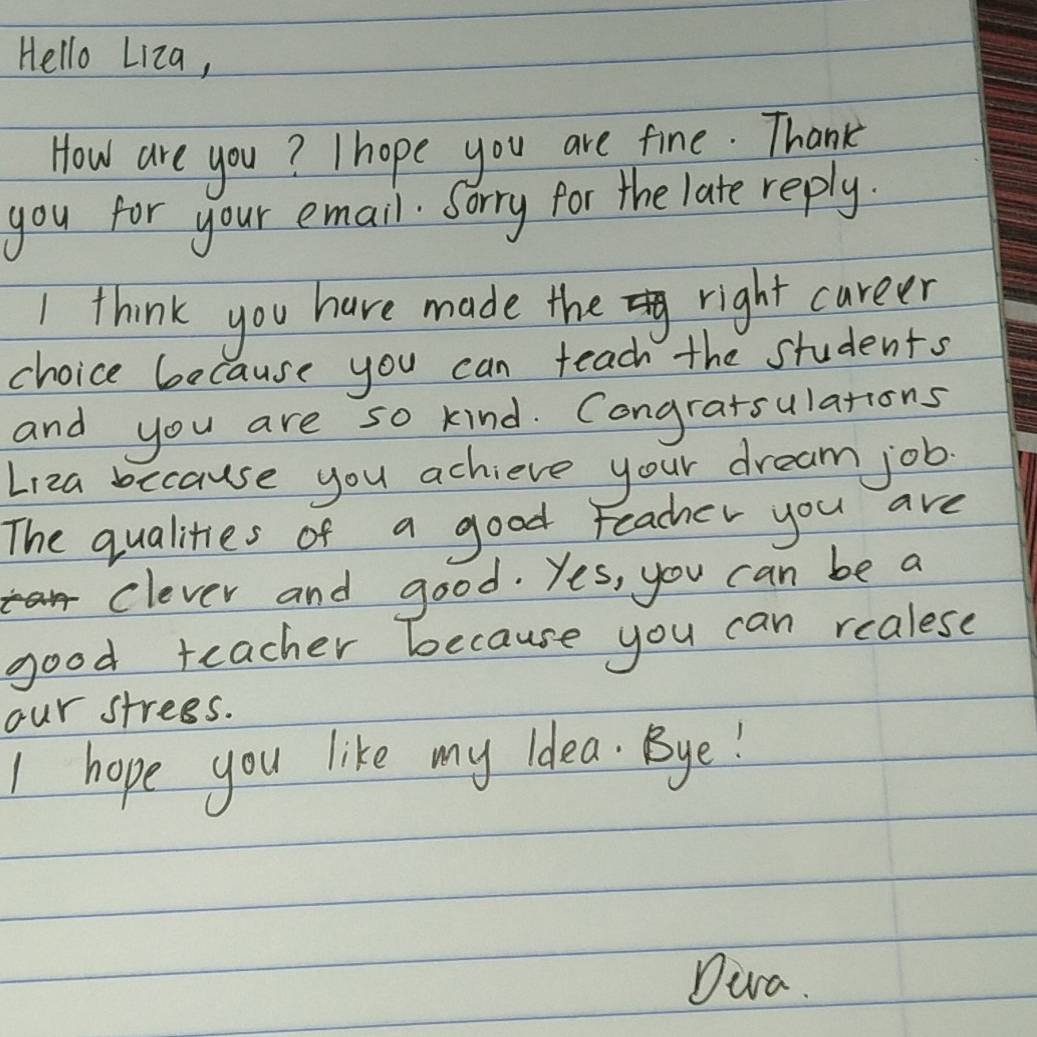 Hello Liza,
How are you? I hope you are fine. Thank
you for your email. Sorry for the late reply.
I think you have made the right career
choice because you can teach the students
and you are so kind. Congratsulations
Liza because you achieve your dream job.
The qualities of a good teacher you are
can clever and good. Yes, you can be a
good teacher because you can realese
our stress.
I hope you like my Idea. Bye!
Deva.